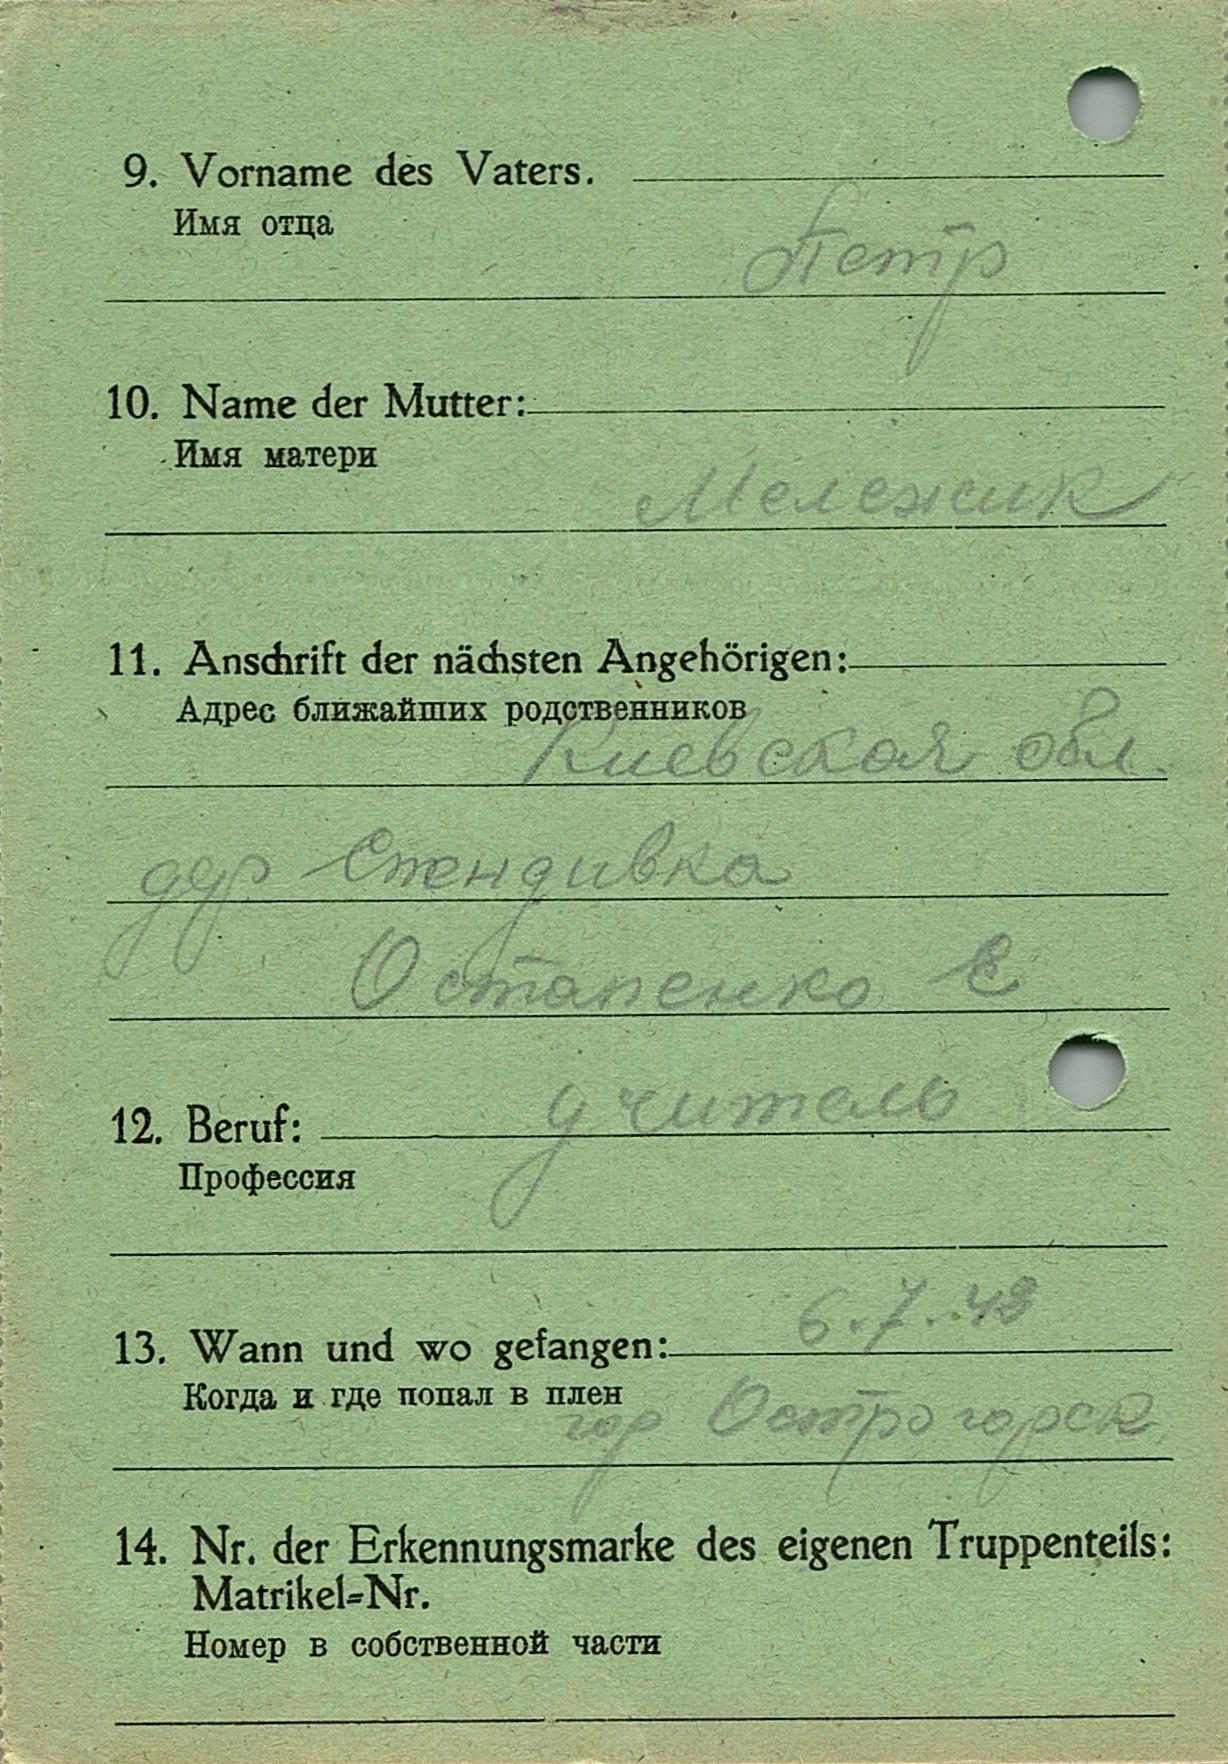 9. Vorname des Vaters.
Имя отца
Петр
10. Name der Mutter:
Имя матери
Мележик
11. Anschrift der nächsten Angehörigen:
Адрес ближайших родственников
Киевская обл.
дер Стендивка
Остапенко Е
12. Beruf: учитель
Профессия
13. Wann und wo gefangen: 6.7.43
Когда и где попал в плен
гор Острогорск
14. Nr. der Erkennungsmarke des eigenen Truppenteils:
Matrikel=Nr.
Номер в собственной части